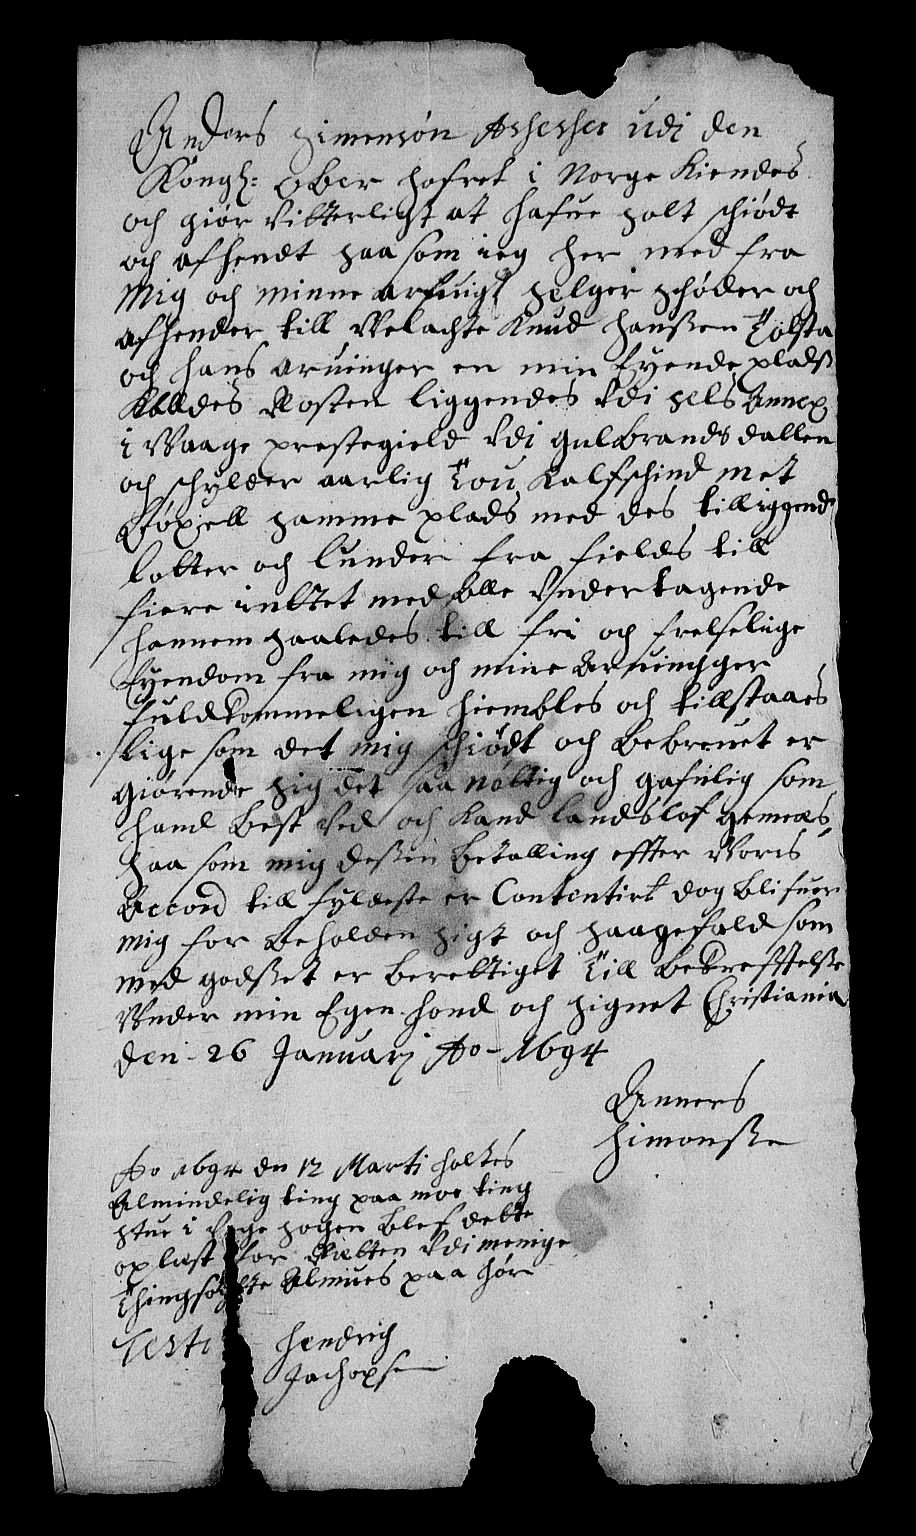 Anders Simensøn Assesser udi den
Kongl: Ober hofret i Norge Kiendes
och giør Vitterligt at hafue solt schiødt
och afhendt saa som ieg her med fra
Mig och minne arfuing: selger schøder och
afhender till Velachte Knud Hanssen Tolsta
och hans aruinger en min Eyende pladtz
Kaldes Mosten liggendes Vdi Sels Annex
i Waage prestegield Vdi gulbrandsdallen
och schylder aarlig Tou Kalfschind met
Bøxell samme plads med des tilliggende
lotter och lunder fra fields till
fiere inttet med alle Vndertagende
hannem saaledes till fri och frelselige
Eyendom fra mig och mine Aruindger
fuldkommeligen hiembles och tillstaaes
lige som det mig schiødt och bebreuet er
giørende sig det saa nøttig och gafnlig som
hand best Ved och Kand landslof gemæs
saa som mig dessen betalling effter Voris
Accord till fyldeste er Contentirt dog blifuer
mig for beholden sigt och saagefald som
med godset er berettiget Till bekrefftelse
Vnder min Egen hond och signet Christiania
den 26 Januarj Ao 1694
Anners
Simonsse
Ao 1694 den 12 Marti holtes
Almindelig ting paa moe ting
stue i sogen blef dette
oplæst for Rætten Vdi menige
Thingsøgte Almues paa hør
Testr
Hendrich
Jachopse